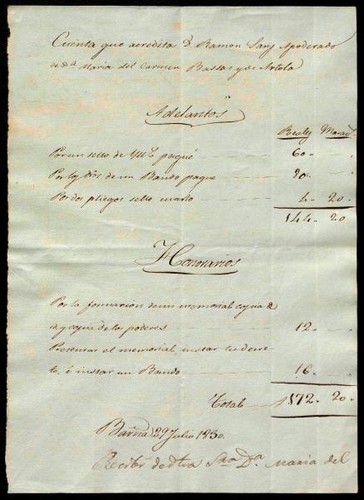 Cuenta que acredita D. Ramon Sanz Apoderado
de Dª Maria del Carmen Bassas y de Artola
Adelantos
Reales Marav.
Por un sello de pagué 60 "
Por los dros de un Bando pague 20 "
Por dos pliegos sello cuarto 4 20
144 20
Honorarios
Por la formacion de un memorial copia de
y copia de los poderes 12 "
Presentar el memorial instar su
é instar un Bando 16 "
Total 172 20
Barna 29 Julio 1830
Recibí de dha Sra Dª Maria del